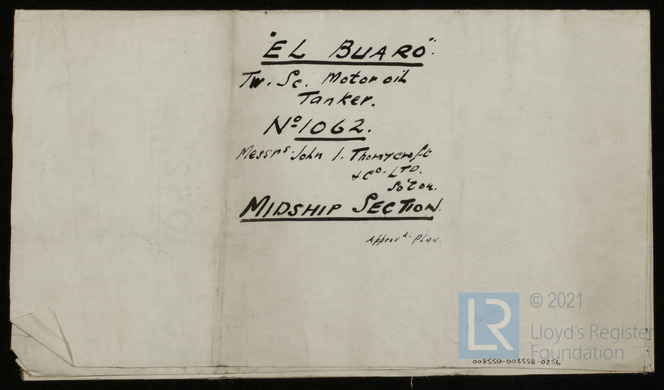 "EL BUARO".
Tw. Sc. Motor oil
Tanker.
Nº 1062.
Messrs. John I. Thornycroft
& Co. LTD.
So'ton.
MIDSHIP SECTION.
Approvd. PLAN.
LR
© 2021
Lloyd's Register
Foundation
008550-008558-0256